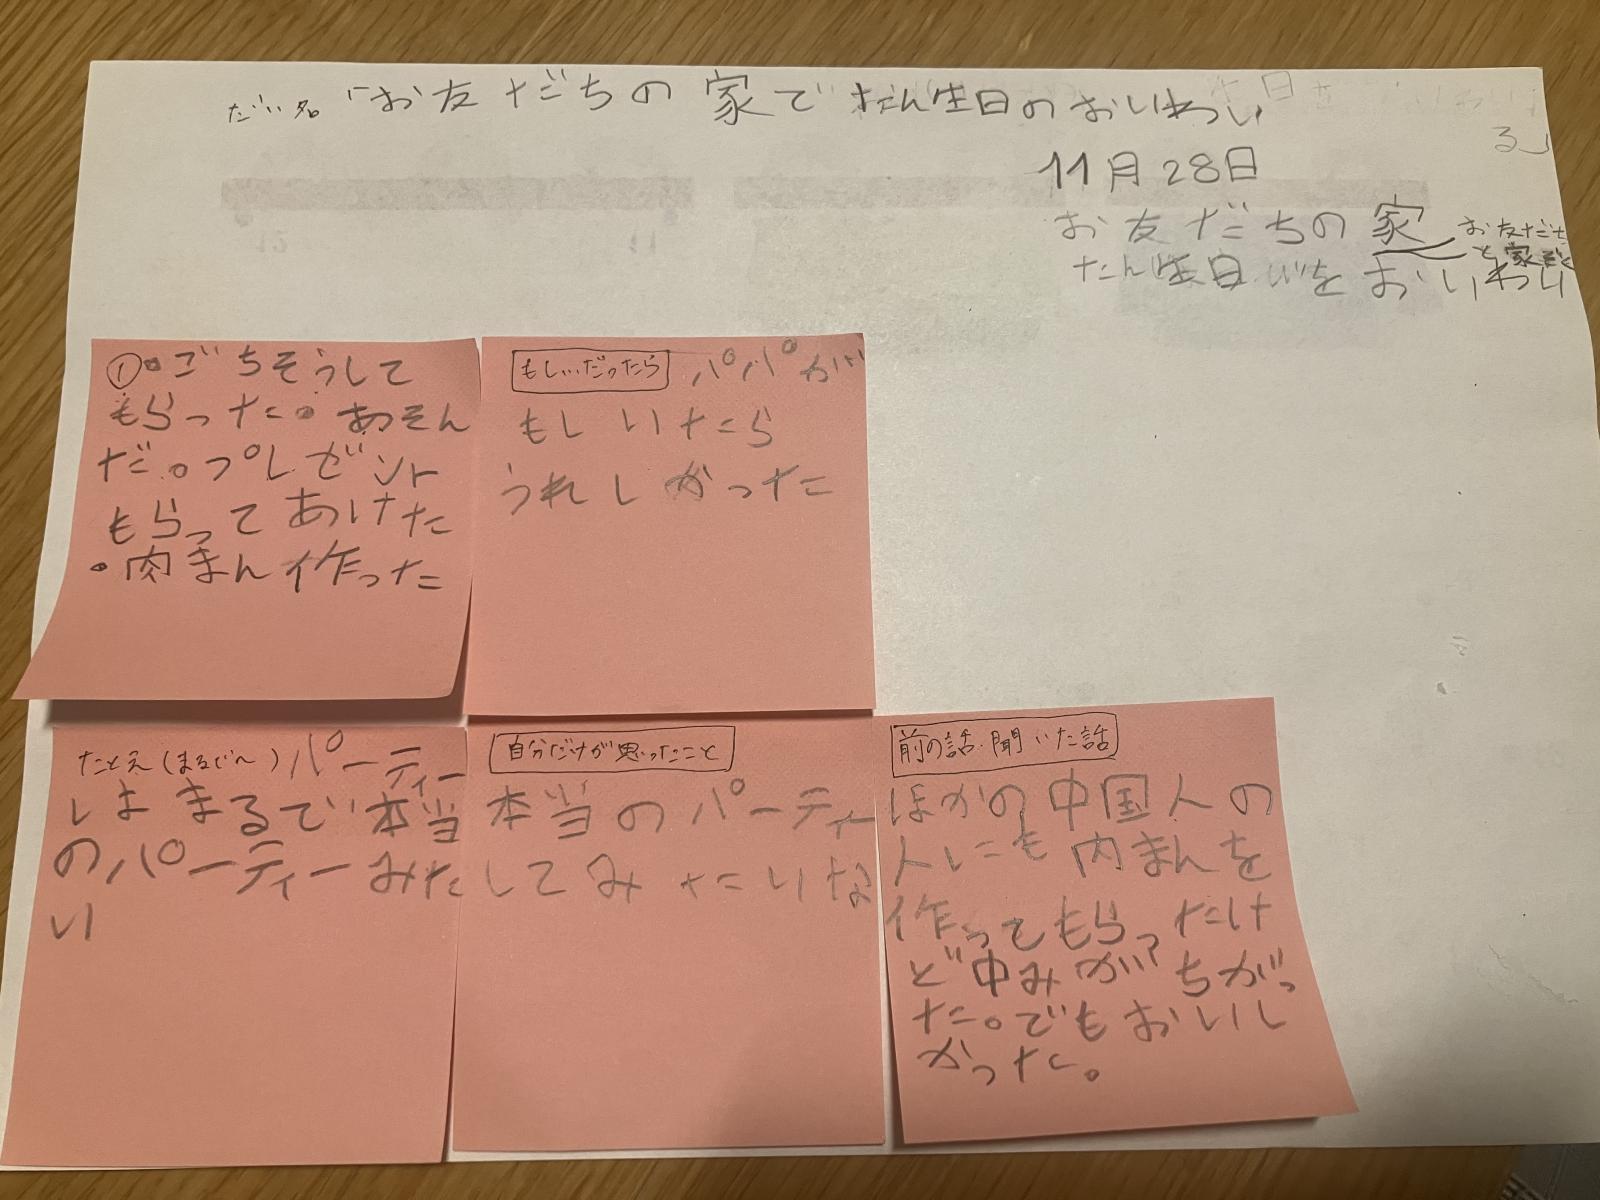 だい名「お友だちの家でたん生日のおいわい
る」
11月28日
お友だちの家
お友だち
と家ぞく
たん生日 をおいわい
① ・ごちそうして
もらった・あそん
だ。プレゼント
もらってあけた
・肉まん作った
もし…だったら パパが
もしいたら
うれしかった
たとえ(まるで〜) パーティー
は まるで本当
のパーティーみた
い
自分だけが思ったこと
本当のパーティー
してみたいな
前の話・聞いた話
ほかの中国人の
人にも肉まんを
作ってもらっただけ
ど中みが ちがっ
た。でもおいし
かった。